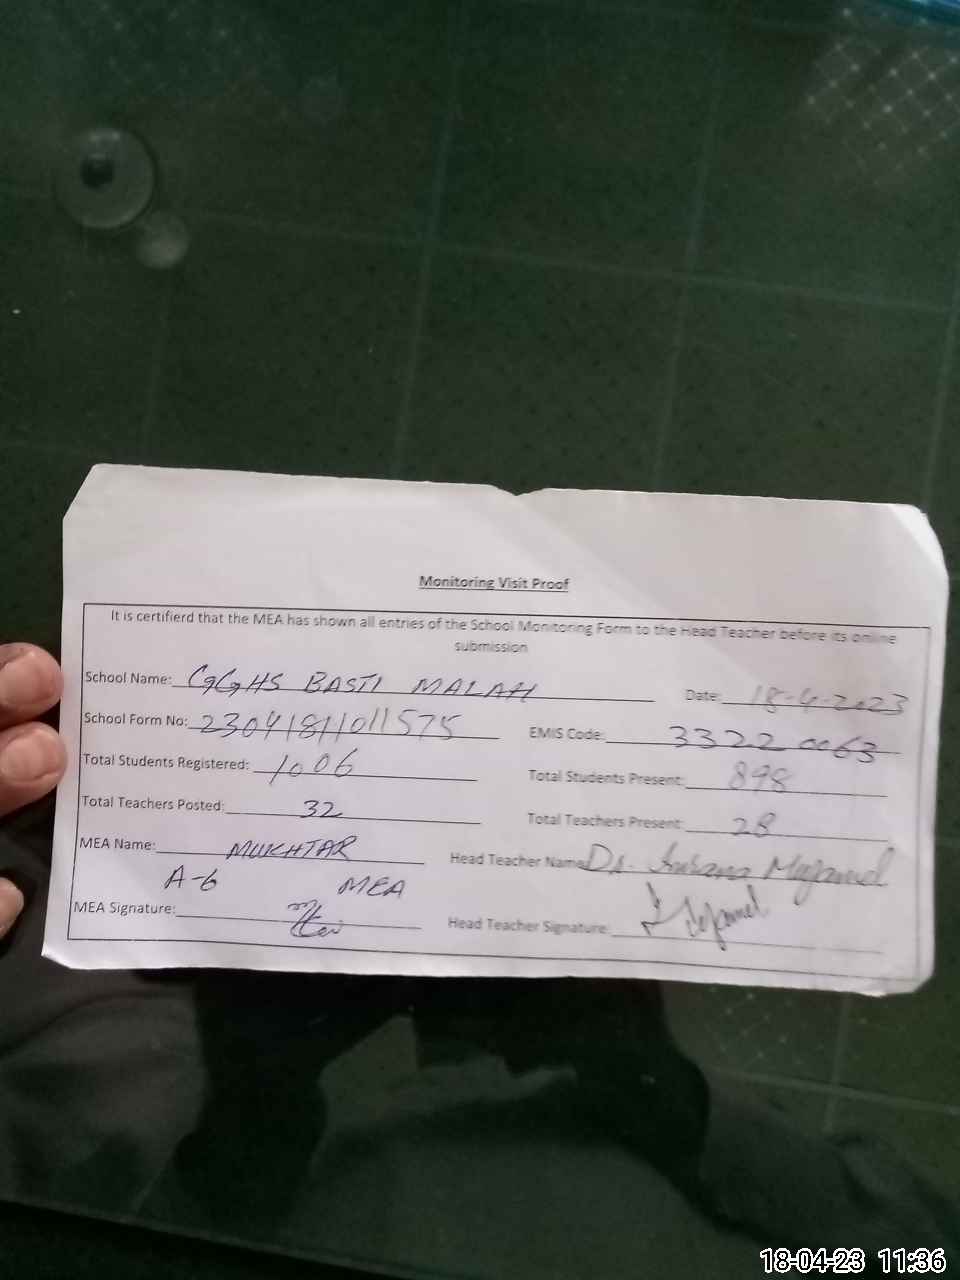 Monitoring Visit Proof
It is certifierd that the MEA has shown all entries of the School Monitoring Form to the Head Teacher before its online
submission
School Name: GGHS BASTI MALAH Date: 18-4-2023
School Form No: 23041811011575 EMIS Code: 33220063
Total Students Registered: 1006 Total Students Present: 898
Total Teachers Posted: 32 Total Teachers Present: 28
MEA Name: MUKHTAR Head Teacher Name Dr.
A-6 MEA
MEA Signature: Head Teacher Signature:
18-04-23 11:36